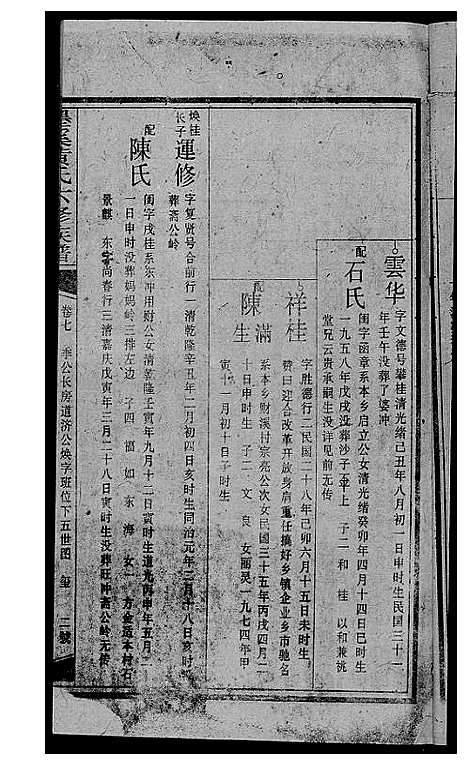 雲华
字文德号攀桂清光绪己丑年八月初一日申时生民国三十一
年壬午没葬了婆冲
配
石氏
闺字函章系本乡启立公女清光绪癸卯年四月十四日巳时生
一九五八年戊戌没葬沙子 上 子二 和 桂 以和兼祧
堂兄云贵承嗣生没详见前无传
祥桂
字胜德行二民国二十八年己卯六月十五日未时生
赞曰迎合改革开放身肩重任搞好乡镇企业乡市驰名
配
陳满生
系本乡财溪村宗亮公次女民国三十五年丙戌四月二
十日申时生 子二 文 良 女丽灵一九七四年甲
寅十一月初十日子时生
焕桂
长子
運修
字复贤号合前行一清乾隆辛丑年二月初四日亥时生同治元年三月十八日亥时
葬斋公岭
配
陳氏
闺字戌桂系东冲用财公女清乾隆壬寅年九月十二日寅时生道光丙申年五月二
一日申时没葬妈妈岭三排左边 子四 福 如 东 海 女一 方金适本村石
景麒 东字尚春行三清嘉庆戊寅年三月二十八日寅时生没葬旺冲斋公岭无传
氏六修族譜
卷七 季公长房道济公焕字班位下五世图
二號